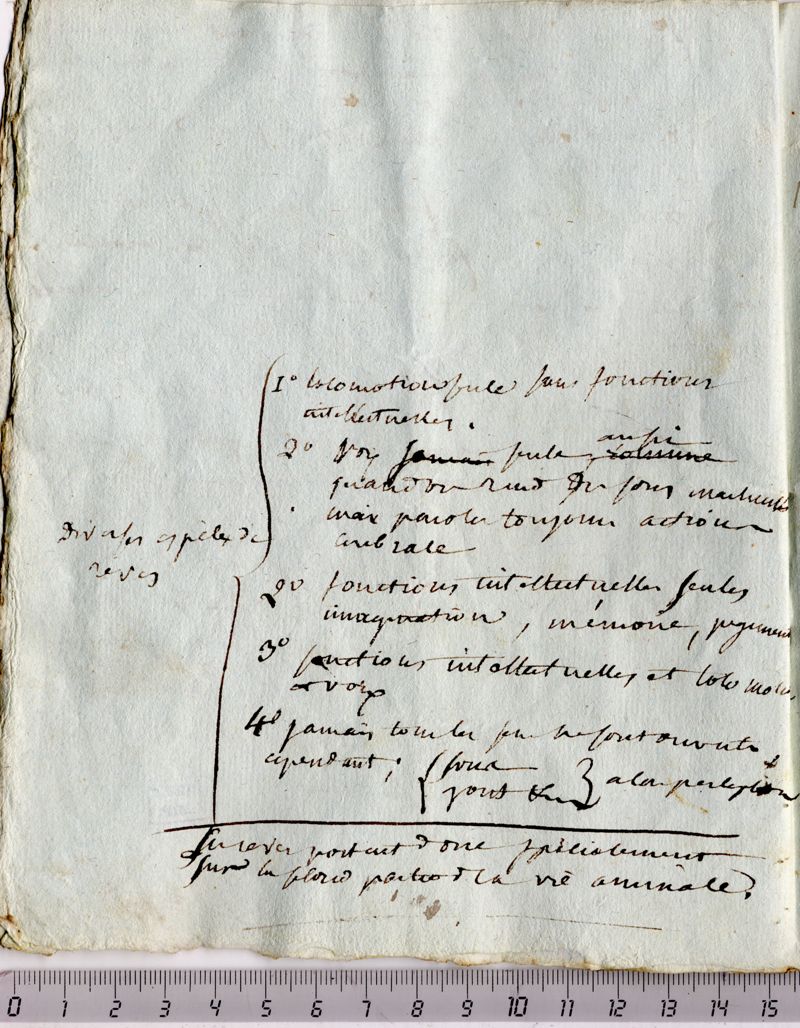 Diverses espèces de
reves
1° locomotion seule sans fonctions
intellectuelles.
2° voix jamais seule, aussi
quand on rend des sons
mais paroles toujours action
cerebrale
2° fonctions intellectuelles seules
imagination, mémoire, jugement
3° fonctions intellectuelles et loco
et voix
4° jamais tous les sens ne sont ouverts
cependant;
gout
a la perception
les reves portent donc spécialement
sur la partie de la vie animale.
0 1 2 3 4 5 6 7 8 9 10 11 12 13 14 15